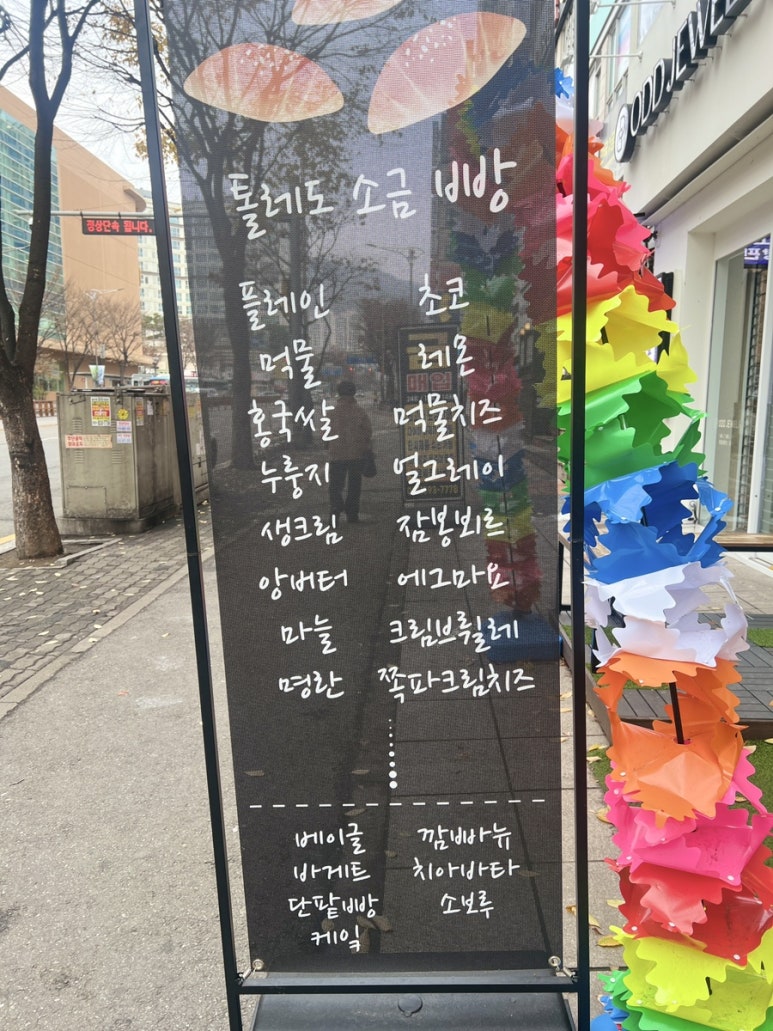 톨레도 소금 빵
플레인 초코
먹물 레몬
홍국쌀 먹물치즈
누룽지 얼그레이
생크림 잠봉뵈르
앙버터 에그마요
마늘 크림브륄레
명란 쪽파크림치즈
베이글 깜빠뉴
바게트 치아바타
단팥빵 소보루
케잌
정상단속 됩니다.
ODD JEWEL
매입